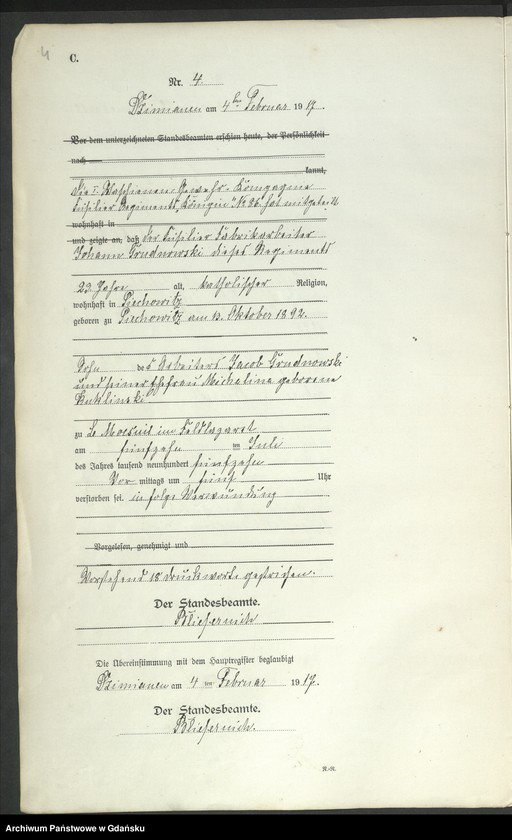 4
C.
Nr. 4
Dzimianen am 4ten Februar 1917.
Vor dem unterzeichneten Standesbeamten erschien heute, der Persönlichkeit
nach
kannt,
Die I. Maschinen Gewehr-Kompagnie
Füsilier Regiments "Königin" Nr. 86. hat mitgeteilt
wohnhaft in
und zeigte an, daß der Füsilier Fabrikarbeiter
Johann Grudnowski dieses Regiments
23 Jahre alt, katholischer Religion,
wohnhaft in Piechowitz
geboren zu Piechowitz am 13. Oktober 1892.
Sohn des Arbeiters Jacob Grudnowski
und seiner Ehefrau Michalina geborene
Kuklinski
zu Le Mesnil im Feldlazaret
am fünfzehn ten Juli
des Jahres tausend neunhundert fünfzehn
Vor mittags um fünf Uhr
verstorben sei. in folge Verwundung
Vorgelesen, genehmigt und
Vorstehend 18 Druckworte gestrichen.
Der Standesbeamte.
Bliefernich
Die Übereinstimmung mit dem Hauptregister beglaubigt
Dzimianen am 4 ten Februar 1917.
Der Standesbeamte.
Bliefernich.
Archiwum Państwowe w Gdańsku